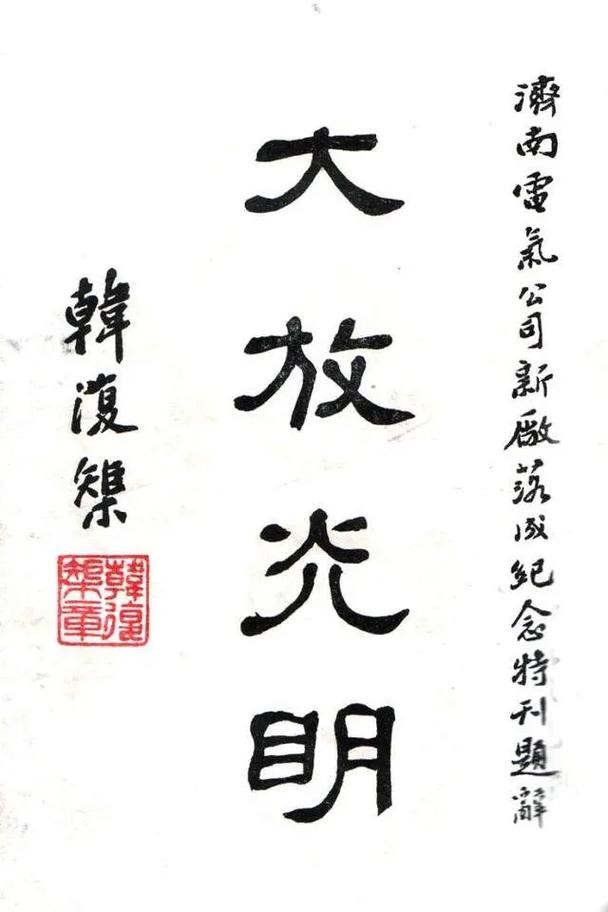 濟南電氣公司新廠落成紀念特刊題辭
大放光明
韓復榘
韓復
榘章